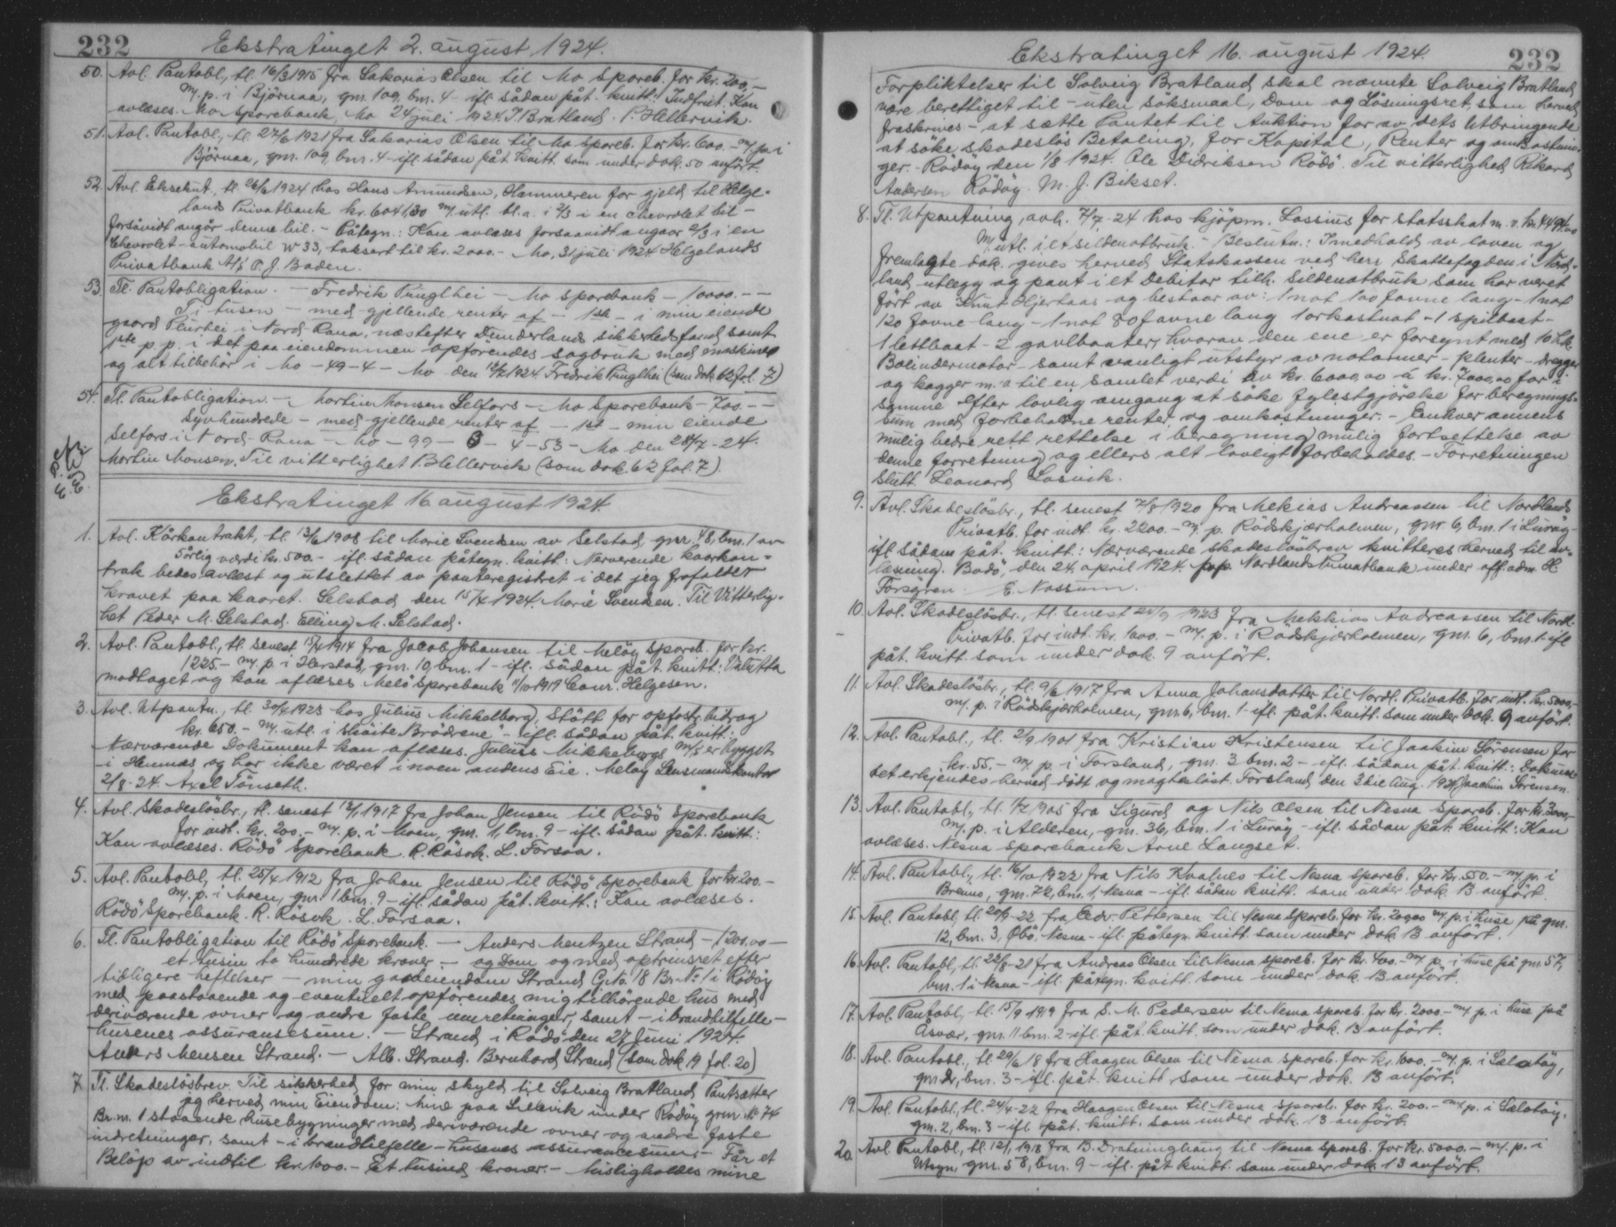 232
Ekstratinget 2. august 1924.
50. Avl. Pantobl, tl. 16/3 1915 fra Sakarias Olsen til Mo Spareb. for kr. 200,-
m/ p. i Björnaa, gnr. 109, bnr. 4 - ifl. sådan påt. kvitt: Indfriet. Kan
avlæses. Mo Sparebank, Mo 24 juli 1924. J. Bratland. P. Hellervik.
51. Avl. Pantobl, tl. 27/6 1921 fra Sakarias Olsen til Mo Spareb. for kr. 600.- m/ p. i
Björnaa, gnr. 109, bnr. 4 - ifl. sådan påt. kvitt. som under dok. 50 anfört.
52. Avl. Eksekut. tl. 1924 hos Hans Amundsen, Hammeren for gjeld til Helge-
lands Privatbank kr. m/ utl. bl. a. i 2/3 i en Chevrolet bil -
forsåvidt angår denne bil. - Påtegn.: Kan avlæses forsaavidt angaar 2/3 i en
Chevrolet-automobil W 33, taksert til kr. 2000.- Mo, 31 juli 1924 Helgelands
Privatbank A/S P. J. Baden.
53. Tl. Pantobligation. - Fredrik Ringlhei - Mo Sparebank - 10000.- -
Ti tusen - med gjellende renter af - 1ste - i min eiende
gaard i Nord Rana, næstefter Dunderlands sikkerhedsfond samt
1ste p. p. i det paa eiendommen opförendes sagbruk med maskiner
og alt tilbehör i Mo - 49 - 4 - Mo den 1924 Fredrik Ringlhei (som dok. 63 fol. 7)
54. Tl. Pantobligation - Martin Monsen Selfors - Mo Sparebank - 700.- -
Syvhundrede - med gjellende renter af - 1ste - min eiende
Selfors i Nord-Rana - Mo - 99 - - 4 - 53 - Mo den 28/7 - 24.
Martin Monsen. Til vitterlighet P. Hellervik (som dok. 62 fol. 7).
Ekstratinget 16 august 1924
1. Avl. Kårkontrakt, tl. 13/6 1908 til Marie Svendsen av Selstad, gnr. 48, bnr. 1 av
5årlig værdi kr. 500.- ifl. sådan påtegn. kvitt: Nærværende kaarkon-
trak bedes avlæst og utslettet av panteregistret i det jeg frafalder
kravet paa kaaret. Selstad den 15/4 1924. Marie Svendsen. Til Vitterlig-
het Peder M. Selstad. Elling M. Selstad.
2. Avl. Pantobl, tl. senest 1914 fra Jacob Johansen til Melöy Spareb. for kr.
1225.- m/ p. i gnr. 10, bnr. 1 - ifl. sådan påt. kvitt:
modtaget og kan aflæses Melö Sparebank 1919 Conr. Helgesen.
3. Avl. Utpantn., tl. 30/4 1923 hos Julius Mikkelborg, Stött for opfostr. bidrag
kr. 650.- m/ utl. i Brödrene - ifl. sådan påt. kvitt:
Nærværende Dokument kan aflæses. Julius Mikkelborgs m/s er bygget
i Hemnes og har ikke været i noen andens Eie. Melöy Lensmandskontor
2/8 - 24. Axel Tönseth.
4. Avl. Skadeslösbr., tl. senest 1917 fra Johan Jensen til Rödö Sparebank
for indt. kr. 200.- m/ p. i Moen, gnr. 1, bnr. 9 - ifl. sådan påt. kvitt:
Kan avlæses. Rödö Sparebank. R. Rösok. L. Forsaa.
5. Avl. Pantobl, tl. 25/4 1912 fra Johan Jensen til Rödö Sparebank for kr. 200.-
m/ p. i Moen, gnr. 1 bnr. 9 - ifl. sådan påt. kvitt: Kan avlæses.
Rödö Sparebank. R. Rösok. L. Forsaa.
6. Tl. Pantobligation til Rödö Sparebank. - Anders Mentzen Strand - 1200,00 -
et tusin to hundrede kroner - og dom og med optrinsret efter
tidligere heftelser - min gaardeiendom Strand G. No. 18 Br. No. 1 i Rödöy
med paastaaende og eventuelt opförendes mig tilhörende hus med
deriværende ovner og andre faste innretninger, samt - i brandtilfelle -
husenes assuransesum. - Strand i Rödö den 27 Juni 1924.
Anders Mensen Strand. - Alb. Strand. Bernhard Strand (som dok. 19 fol. 20)
7. Tl. Skadeslösbrev. Til sikkerhed for min skyld til Solveig Bratland Pantsætter
jeg herved min Eiendom: mine paa under Rödöy grnr. No 74
Br. nr. 1 staaende husebygninger med deriværende ovner og andre faste
indretninger, samt - i brandtilfelle - husenes assurancesum - Får et
Beløp av indtil kr. 1000.- Et tusind kroner. - Misligholdes mine
232
Ekstratinget 16. august 1924.
Forpliktelser til Solveig Bratland skal nævnte Solveig Bratland
være berettiget til - uten söksmaal, Dom og Lösningsret, som herved
fraskrives - at sætte Pantet til Auktion for av dets Utbringende
at söke skadeslös Betaling, for Kapital, Renter og omkostnin-
ger. Rödöy den 1/8 1924. Ole Didriksen Rödö. Til vitterlighed Rikard
Andersen Rödöy. M. J. Bikset.
8. Tl. Utpantning, avh. 7/7 - 24 hos kjöpm. Lossius for statsskat m. v. kr.
m/ utl. i et sildenotbruk. - Beslutn.: I medhold av loven og
fremlagte dok. gives herved Statskassen ved herr Skattefogden i Nord-
land utlegg og pant i et debitor tilh. sildenotbruk som har været
fört av Knut Hjertaas og bestaar av: 1 not 100 favne lang - 1 not
120 favne lang - 1 not 80 favne lang 1 orkastnot - 1 spilbaat -
1 letbaat - 2 gavlbaater, hvorav den ene er forsynt med 16 h.k.
Bolindermotor - samt vanligt utstyr av notörner - plenter - dregger
og kagger m. v. til en samlet verdi av kr. 6000,00 à kr. 7000,00 for i
samme efter lovlig omgang at söke fylestgjörelse for beregnings-
sum med forbeholdne renter og omkostninger. - Enhver annens
mulig bedre rett rettelse i beregning mulig fortsettelse av
denne forretning og ellers alt lovligt forbeholdes. - Forretningen
slutt Leonard Losvik.
9. Avl. Skadeslösbr., tl. senest 7/8 1920 fra Mekias Andreassen til Nordlands
Privatb. for indt. kr. 2200.- m/ p. Rödskjærholmen, gnr. 6, bnr. 1 i Luröy -
ifl. sådan påt. kvitt: Nærværende skadeslösbrev kvitteres herved til av-
læsning. Bodö, den 24. april 1924. pup. Nordlands Privatbank under off. adm. H.
Forsgren E. Nossum.
10. Avl. Skadeslösbr., tl. senest 1923 fra Mekkias Andreassen til Nordl.
Privatb. for indt. kr. 1000.- m/ p. i Rodskjærholmen, gnr. 6, bnr. 1 - ifl
påt. kvitt. som under dok. 9 anfört.
11. Avl. Skadeslösbr., tl. 9/6 1917 fra Anna Johansdatter til Nordl. Privatb. for indt. kr. 5000,-
m/ p. i Rödskjærholmen, gnr. 6, bnr. 1 - ifl. påt. kvitt. som under dok. 9 anfört.
12. Avl. Pantobl., tl. 2/9 1901 fra Kristian Kristensen til Joakim Sörensen for
kr. 55.- m/ p. i Forsland, gnr. 3 bnr. 2 - ifl. sådan påt. kvitt: Dokumen-
tet erkjendes herved dödt og magteslöst. Forsland den 3die Aug. 1924 Joachim Sörensen.
13. Avl. Pantobl., tl. 1905 fra Sigurd og Nils Olsen til Nesna Spareb. for kr. 3000,-
m/ p. i Alderen, gnr. 36, bnr. 1 i Luröy - ifl. sådan påt. kvitt: Kan
avlæses. Nesna Sparebank Arne Langset.
14. Avl. Pantobl., tl. 16/10 1922 fra Nils Kvalnes til Nesna Spareb. for kr. 550.- m/ p. i
gnr. 72, bnr. 1, Nesna - ifl. sådan kvitt. som under dok. 13 anfört.
15. Avl. Pantobl, tl. - 22 fra Edv. Pettersen til Nesna Spareb. for kr. m/ p. i huse på gnr.
12, bnr. 3, Öbö, Nesna - ifl. påtegn. kvitt. som under dok. 13 anfört.
16. Avl. Pantobl., tl. 22/8 - 21 fra Andreas Olsen til Nesna Spareb. for kr. 400.- m/ p. i huse på gnr. 57,
bnr. 1 i Nesna - ifl. påtegn. kvitt. som under dok. 13 anfört.
17. Avl. Pantobl, tl. 15/9 1919 fra S. M. Pedersen til Nesna Spareb. for kr. 2000.- m/ p. i huse på
Asvær, gnr. 11 bnr. 2 - ifl. påt. kvitt. som under dok. 13 anfört.
18. Avl. Pantobl., tl. 29/6 18 fra Haagen Olsen til Nesna Spareb. for kr. 1000.- m/ p. i
gnr. 2, bnr. 3 - ifl. påt. kvitt. som under dok. 13 anfört.
19. Avl. Pantobl, tl. 24/4 - 22 fra Haagen Olsen til Nesna Spareb. for kr. 200.- m/ p. i
gnr. 2, bnr. 3 - ifl. påt. kvitt. som under dok. 13 anfört.
20. Avl. Pantobl, tl. 1918 fra B. Dratninghaug til Nesna Spareb. for kr. 5000.- m/ p. i
gnr. 58, bnr. 9 - ifl. påt. kvitt. som under dok. 13 anfört.